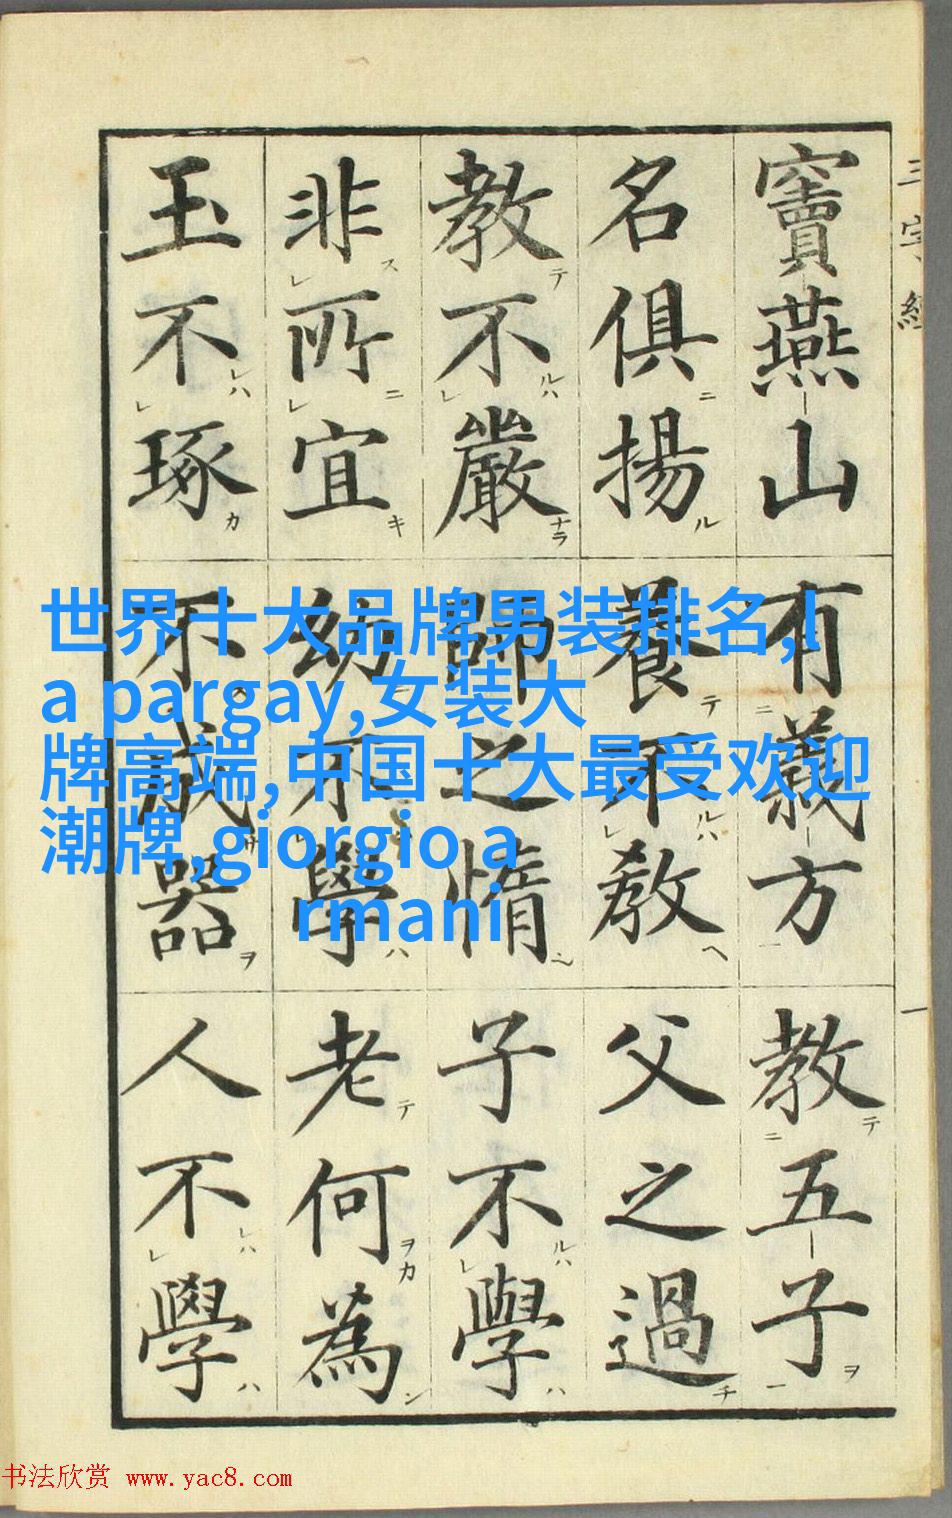 三字經
一
竇燕山有義方教五子
名俱揚養不教父之過
教不嚴師之惰子不學
非所宜幼不學老何為
玉不琢不成器人不學
世界十大品牌男装排名,l
a pargay,女装大
牌高端,中国十大最受欢迎
潮牌,giorgio a
rmani
书法欣赏 www.yac8.com